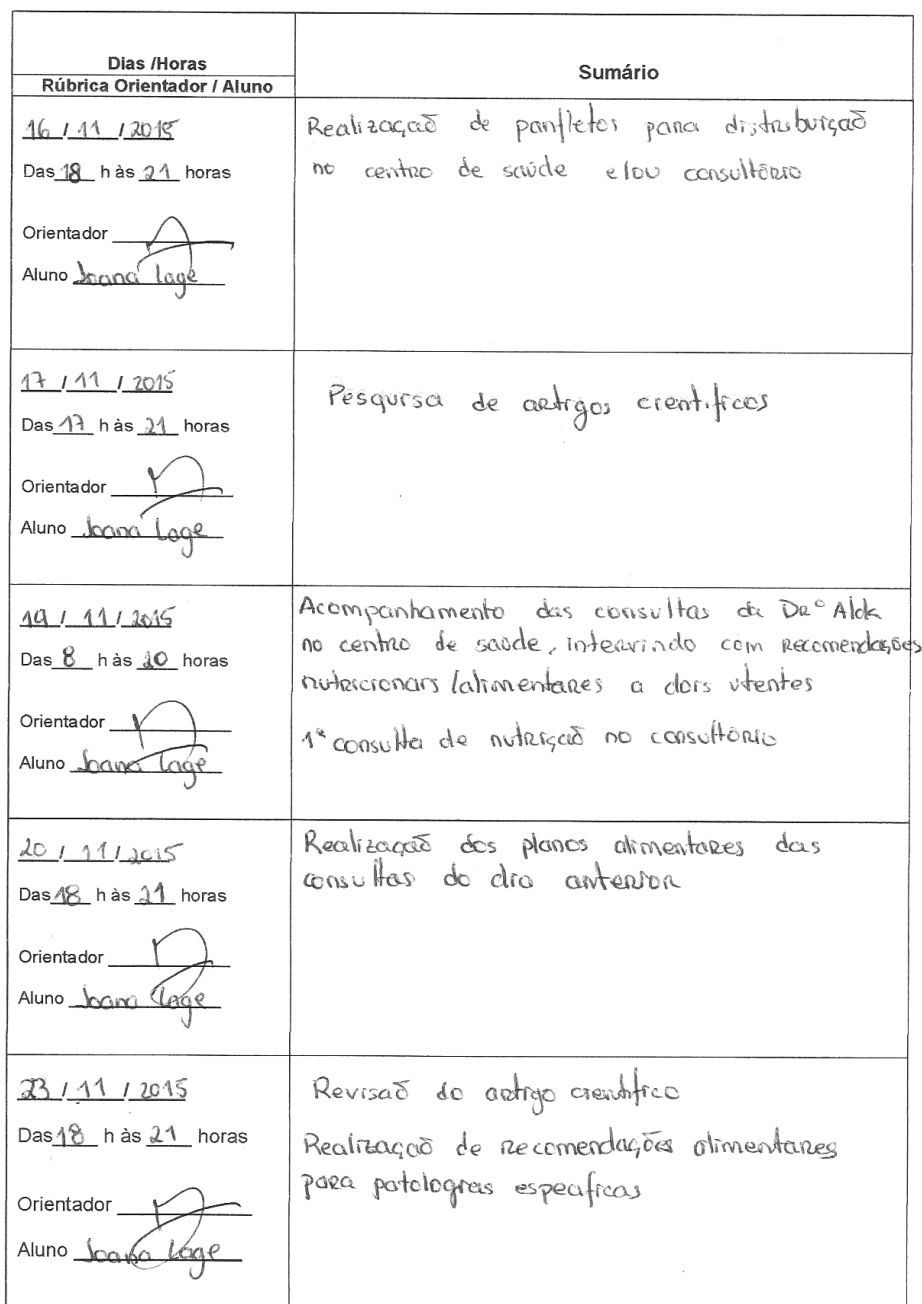 Dias /Horas
Rúbrica Orientador / Aluno
Sumário
16 / 11 / 2015
Das 18 h às 21 horas
Orientador
Aluno Joana Lage
Realização de panfletos para distribuição
no centro de saúde e/ou consultório
17 / 11 / 2015
Das 17 h às 21 horas
Orientador
Aluno Joana Lage
Pesquisa de artigos cientificos
19 / 11 / 2015
Das 8 h às 20 horas
Orientador
Aluno Joana Lage
Acompanhamento das consultas da Drº Alda
no centro de saúde, intervindo com recomendações
nutricionais /alimentares a dois utentes
1ª consulta de nutrição no consultório
20 / 11 / 2015
Das 18 h às 21 horas
Orientador
Aluno Joana Lage
Realização dos planos alimentares das
consultas do dia anterior
23 / 11 / 2015
Das 18 h às 21 horas
Orientador
Aluno Joana Lage
Revisão do artigo cientifico
Realização de recomendações alimentares
para patologias especificas